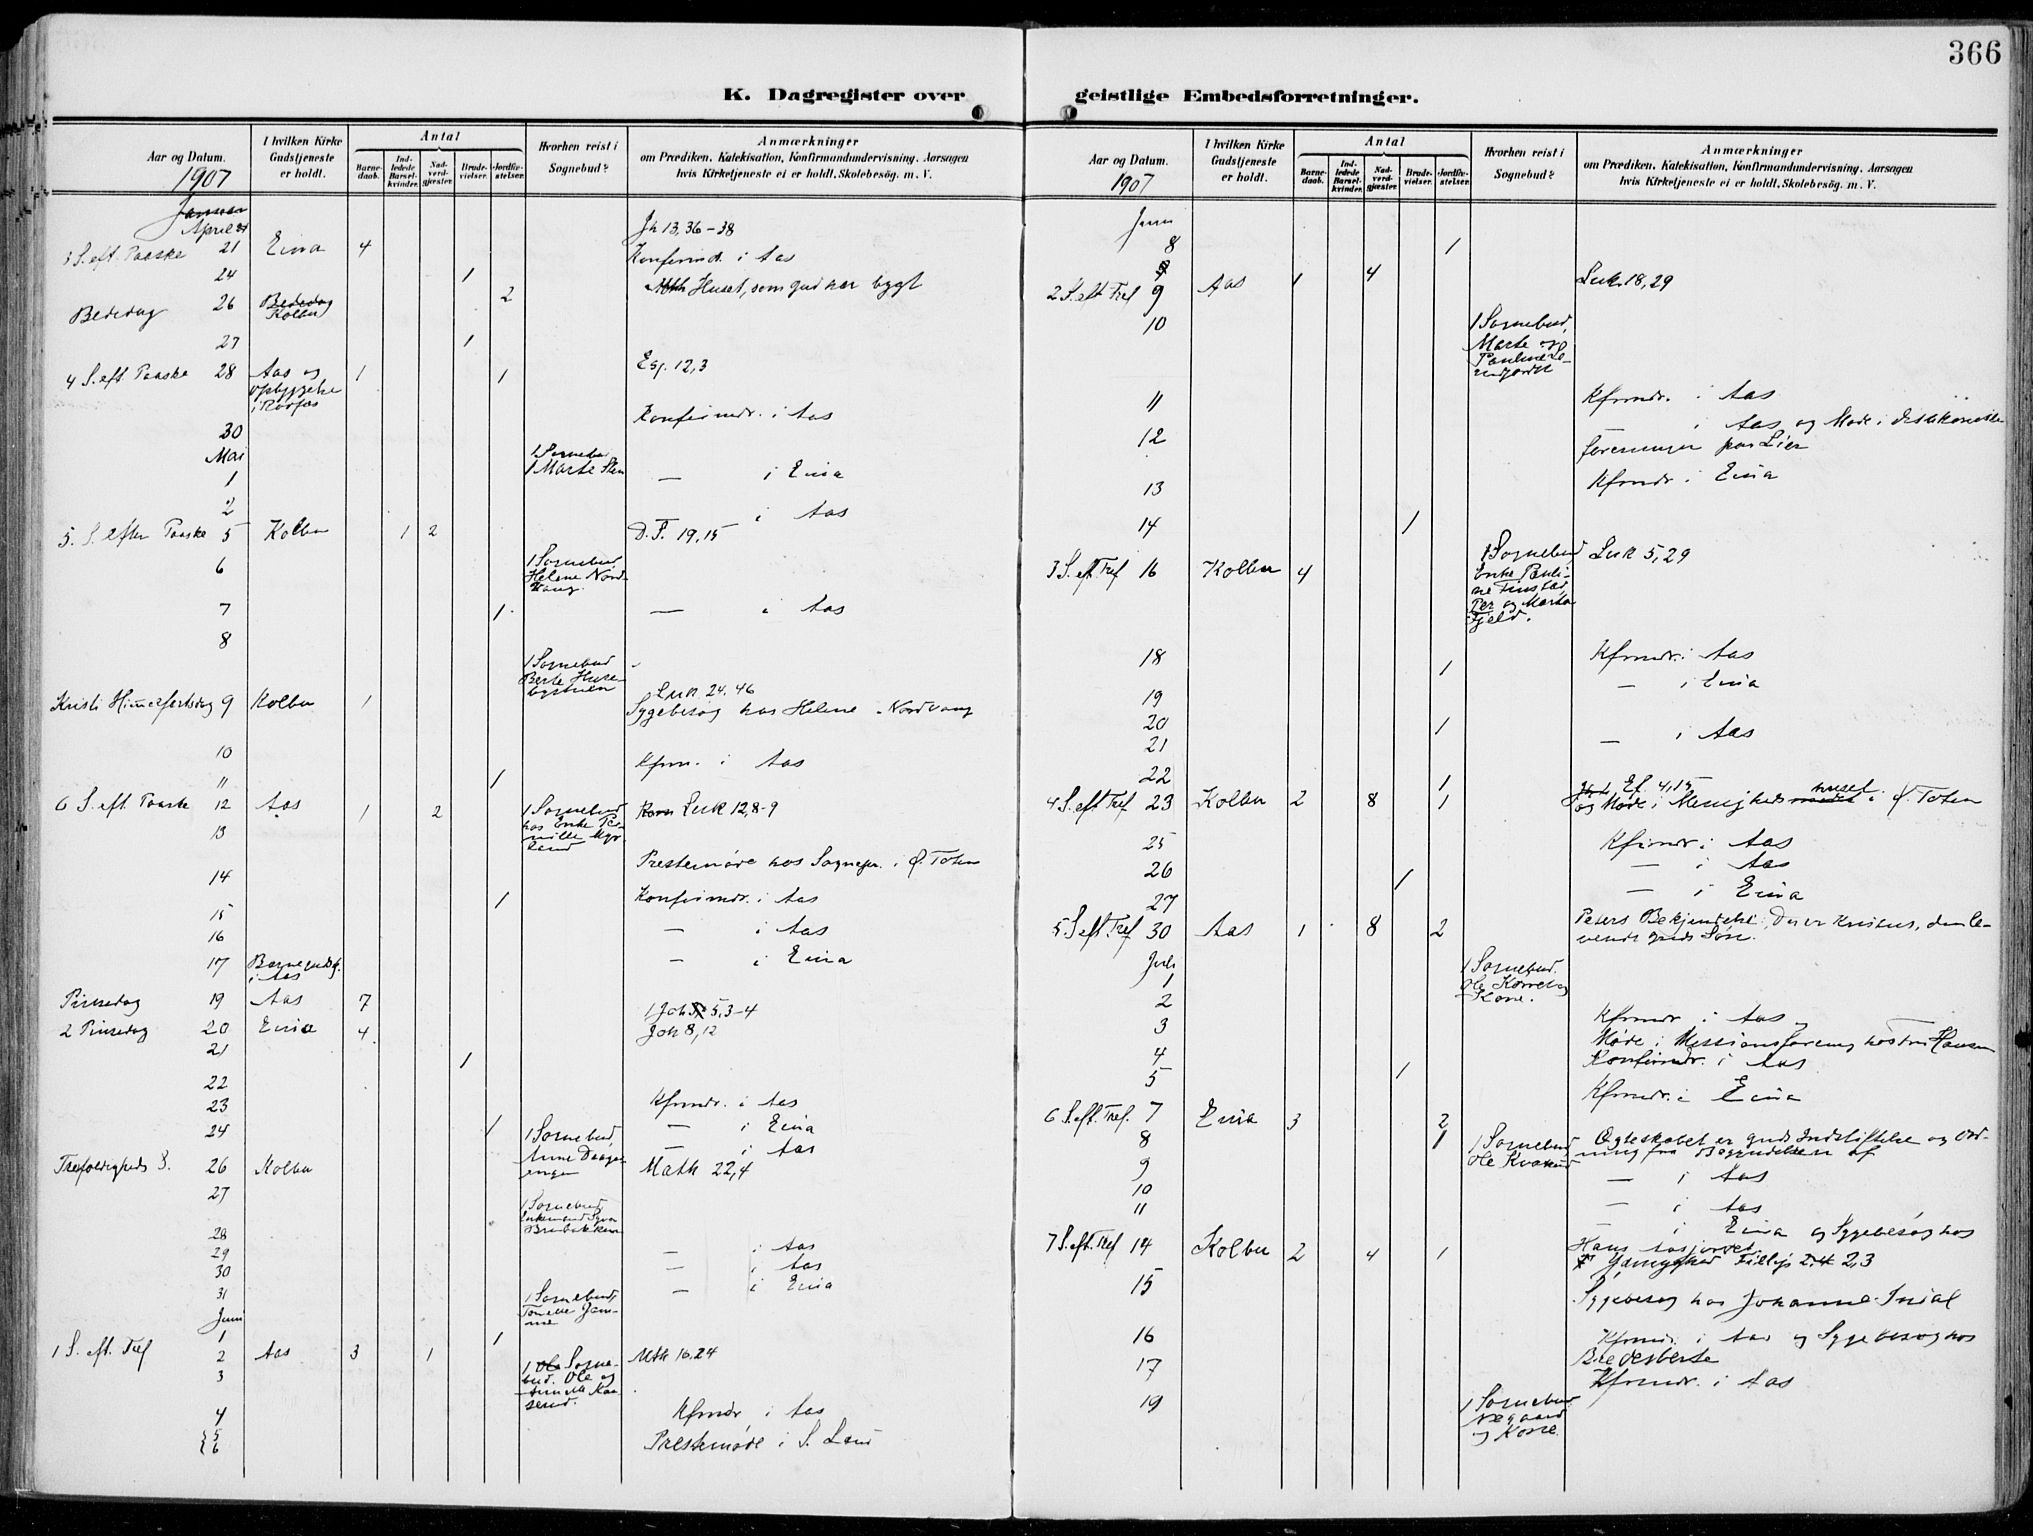 366
K. Dagregister over geistlige Embedsforretninger.
Aar og Datum. 1907
I hvilken Kirke Gudstjeneste er holdt.
Antal
Barnedaab.
Indledede Barselkvinder.
Nadverdgjæster.
Brudevielser.
Jordfæstelser.
Hvorhen reist i Sognebud?
Anmærkninger
om Prædiken, Katekisation, Konfirmandundervisning, Aarsagen
hvis Kirketjeneste ei er holdt, Skolebesög. m. V.
Januar
April
3 S. eft. Paaske 21 Eina 4 Jh 13,36-38
Konfirmd. i Aas
24 1
Bededag 26 Bededag Kolbu 2 Mth Huset, som gud har bygt
27 1
4 S. eft. Paaske 28 Aas og Opbyggelse i 1 1 Esj. 12,3
30 Konfirmdr. i Aas
Mai
1 1 Sognebud Marte Sten — i Eina
2 i Aas
5. S. efter Paaske 5 Kolbu 1 2 D. F. 19,15
6 1 Sognebud Helene Nordvang
7 1 — i Aas
8 1 Sognebud Berte
Kristi Himmelfartsdag 9 Kolbu 1 Luk 24.46
Sygebesøg hos Helene Nordvang
10 Kfrm. i Aas
11 1
6 S. eft. Paaske 12 Aas 1 2 1 Sognebud hos Enke Pernille Luk 12,8-9
13
14 Prestemøde hos Sognepr. i Ø Toten
15 1 Konfirmdr. i Aas
16 — i Aas
17 Barnegudstj. i Aas — i Eina
Pinsedag 19 Aas 7 1 Joh 5,3-4
2 Pinsedag 20 Eina 4 Joh 8,12
21 1
22
23 Kfrmdr. i Aas
24 1 1 Sognebud, Anne — i Eina
— i Aas
Trefoldigheds S. 26 Kolbu Math 22,4
27 1 Sognebud
28
29 — i Aas
30 — i Aas
31 1 Sognebud, — i Eina
Juni
1 1
1 S. eft. Tref 2 Aas 3 1 Mth 16,24
3 1 Ole Sognebud. Ole og
4 Kfrmdr i Aas
5
6 Prestemøde i S. Land
Aar og Datum. 1907
I hvilken Kirke Gudstjeneste er holdt.
Antal
Barnedaab.
Indledede Barselkvinder.
Nadverdgjæster.
Brudevielser.
Jordfæstelser.
Hvorhen reist i Sognebud?
Anmærkninger
om Prædiken, Katekisation, Konfirmandundervisning, Aarsagen
hvis Kirketjeneste ei er holdt, Skolebesög. m. V.
Juni
8 1
2 S. eft Tref 9 Aas 1 4 Luk. 18,29
10 1 Sognebud, Marte og
11 Kfrmdr. i Aas
12 i Aas og Møde i
foreningen paa Lier
13 Kfrmdr. i Eina
14 1
3 S. eft. Tref 16 Kolbu 4 1 Sognebud Enke Pauline Finstad, Per og Marta Fjeld. Luk 5,29
18 1 Kfrmdr. i Aas
19 — i Eina
20 1
21 — i Aas
22 1
4 S. eft Tref 23 Kolbu 2 8 1 Ef. 4,15
og Møde i Menighedshuset i Ø. Toten
25 Kfrmdr i Aas
26 1 — i Aas
27 — i Eina
5 S eft Tref 30 Aas 1 8 2 Peters Bekjendelse: Du er Kristus, den levende guds Søn.
Juli
1 1 Sognebud.
2
3 Kfrmdr i Aas
4 Møde i Missionsforening hos Fru Hansen
5 1 Konfirmdr. i Aas
Kfrmdr. i Eina
6 S. eft. Tref. 7 Eina 3 2
8 1 1 Sognebud Ole Ægteskabet er guds Indstiftelse og Ordning fra Begyndelsen af
9 — i Aas
10 — i Aas
11 — i Eina og Sygebesøg hos
Hans
7 S. eft. Tref 14 Kolbu 2 4 1 Filip 2,3
15 Sygebesøg hos Johanne
16 Kfrmdr. i Aas og Sygebesøg hos
17 Kfrmdr. i Aas
19 1 Sognebud